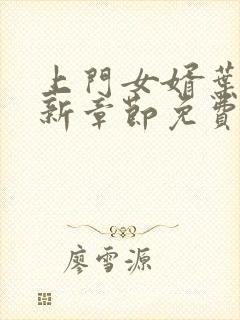 上門女婿葉
新章節免費
廖雪源